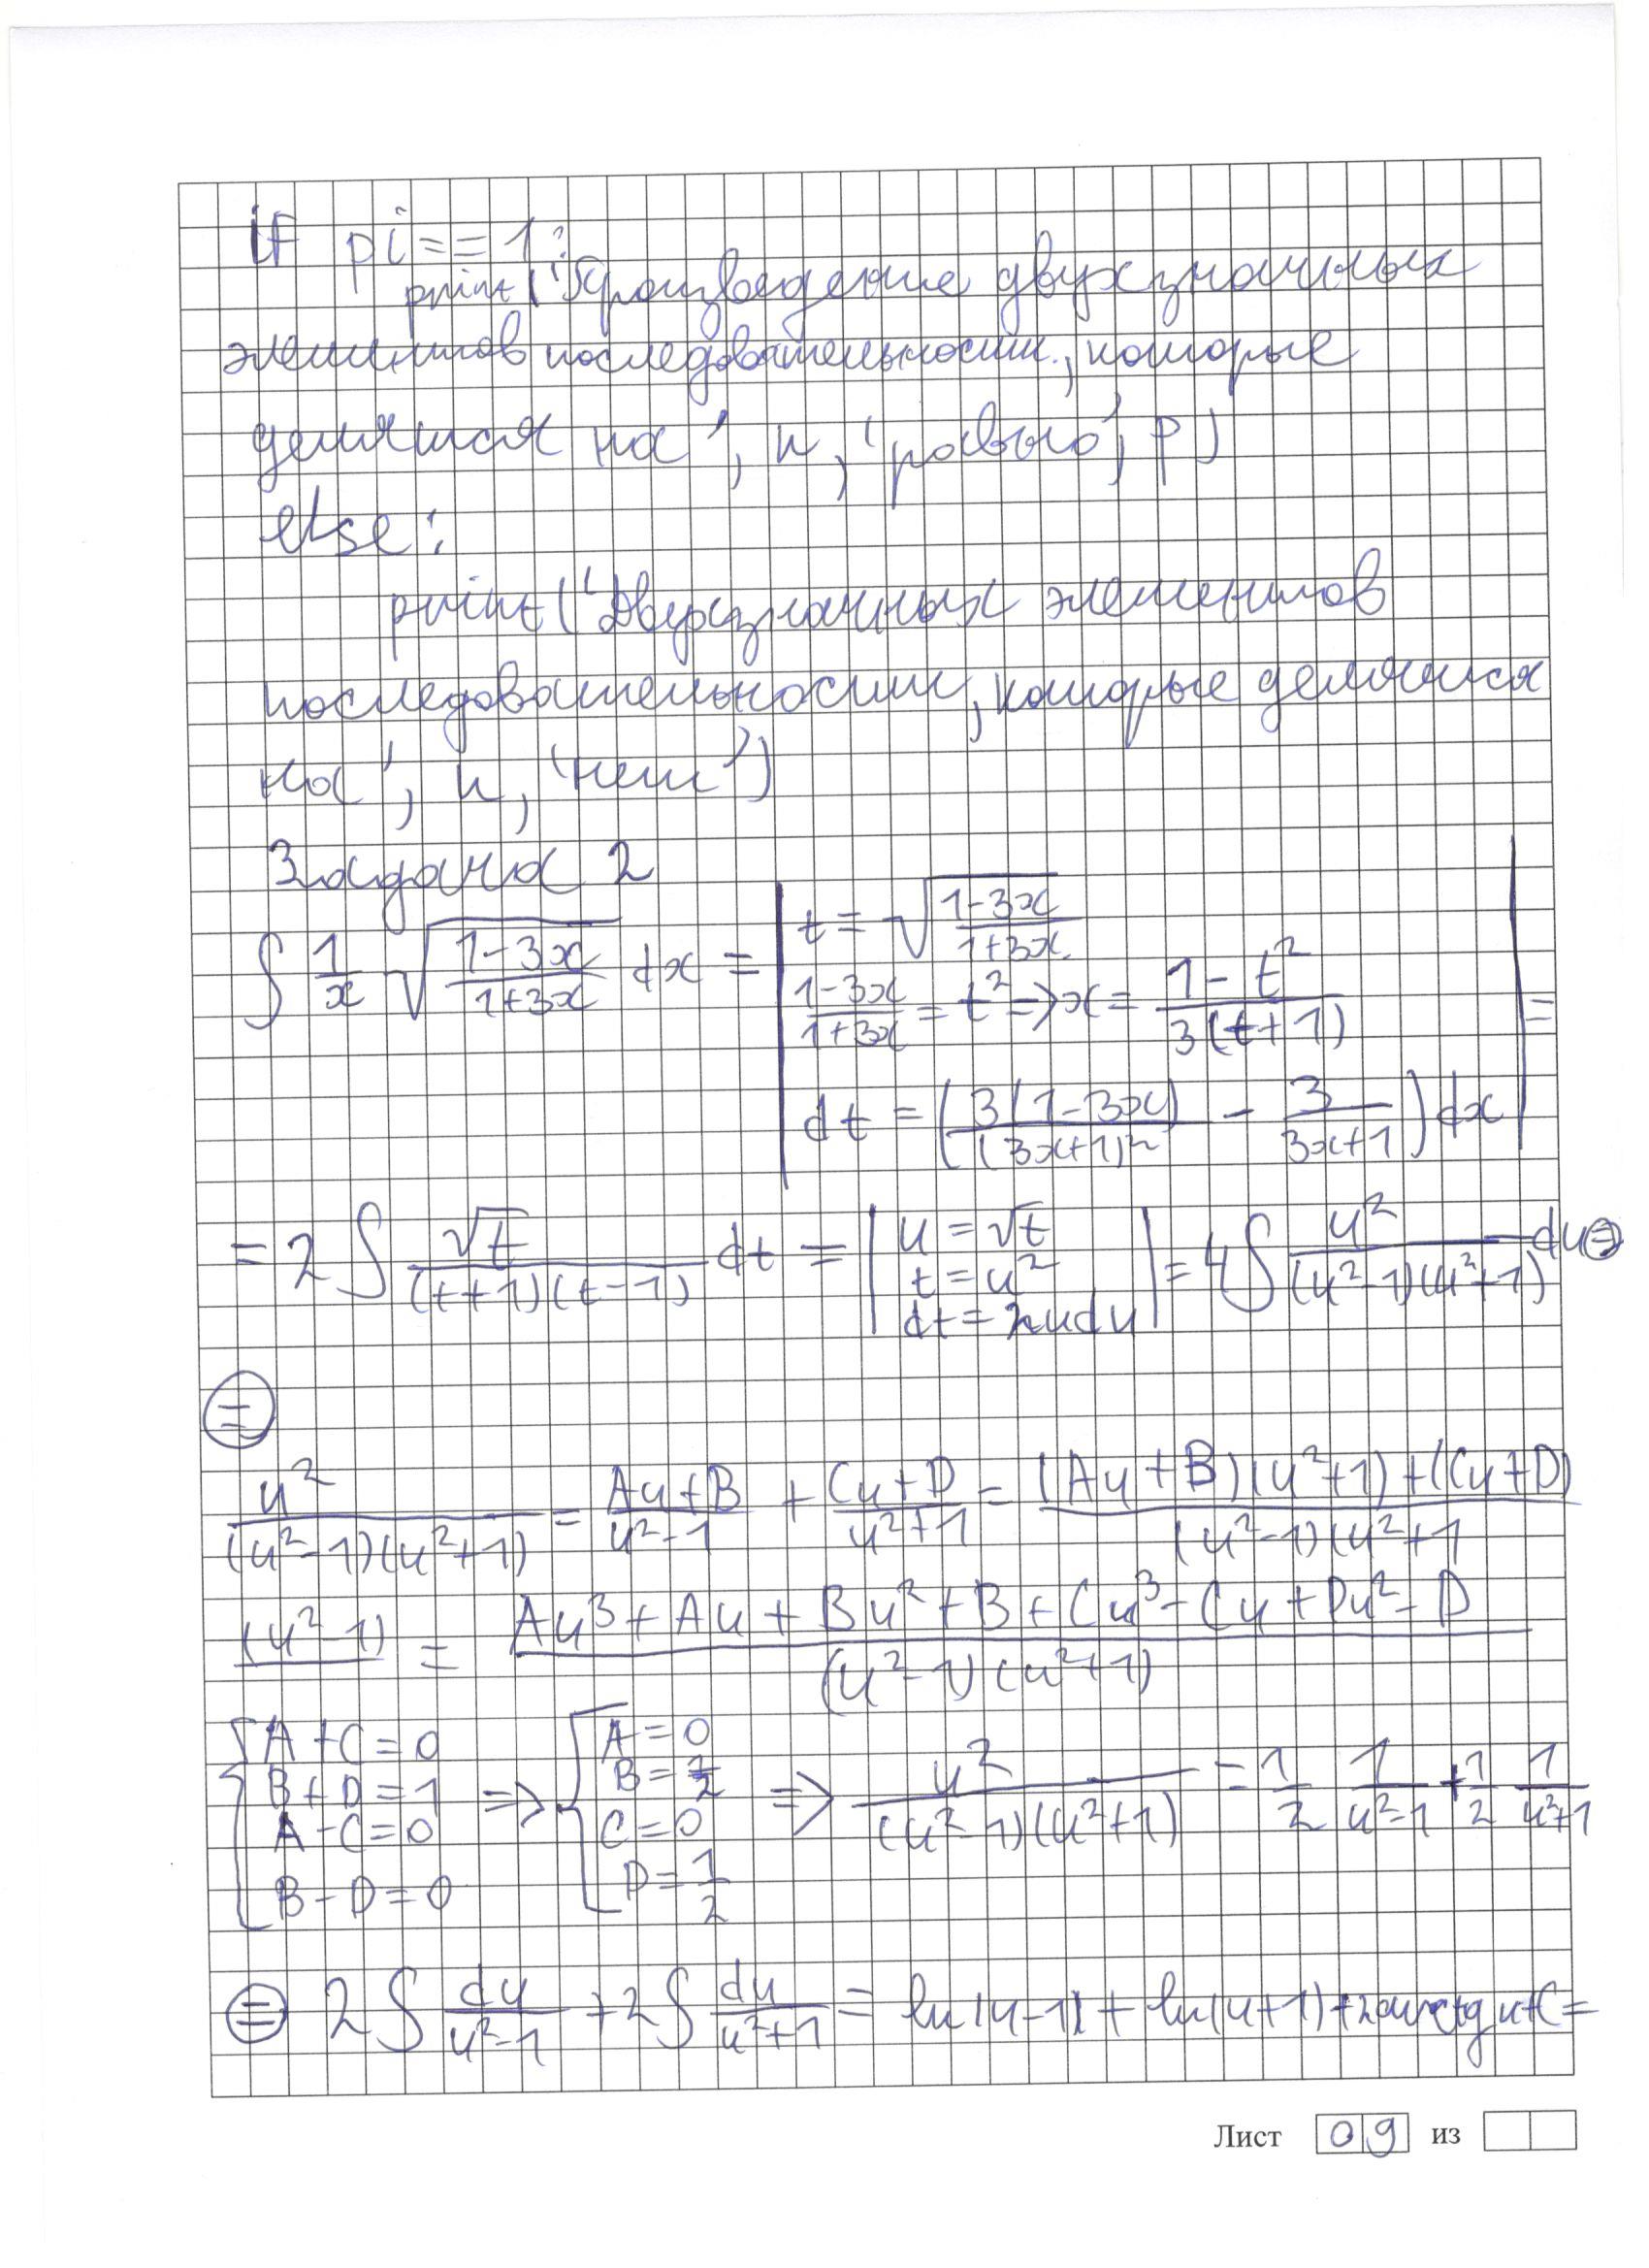 if pi == 1:
print('Произведение двухзначных
элементов последовательности, которые
делятся на', n, 'равно', p)
else:
print('Двухзначных элементов
последовательности, которые делятся
на', n, 'нет')
Задача 2
∫ 1/x √((1-3x)/(1+3x)) dx = | t = √((1-3x)/(1+3x))
(1-3x)/(1+3x) = t² → x = (1-t²)/(3(t+1)) | =
dt = (3(1-3x)/(3x+1)² - 3/(3x+1)) dx
= 2 ∫ √t/((t+1)(t-1)) dt = | u = √t
t = u²
dt = 2udu | = 4 ∫ u²/((u²-1)(u²+1)) du ⊜
⊜
u²/((u²-1)(u²+1)) = (Au+B)/(u²-1) + (Cu+D)/(u²+1) = (Au+B)(u²+1)+(Cu+D)/(u²-1)(u²+1
(u²-1) = (Au³+Au+Bu²+B+Cu³-Cu+Du²-D)/((u²-1)(u²+1))
{ A+C=0
B+D=1
A-C=0
B-D=0
⇒ { A=0
B=1/2
C=0
D=1/2
⇒ u²/((u²-1)(u²+1)) = 1/2 1/(u²-1) + 1/2 1/(u²+1)
⊜ 2 ∫ du/(u²-1) + 2 ∫ du/(u²+1) = ln|u-1| + ln(u+1) + 2arctg u + C =
Лист 09 из